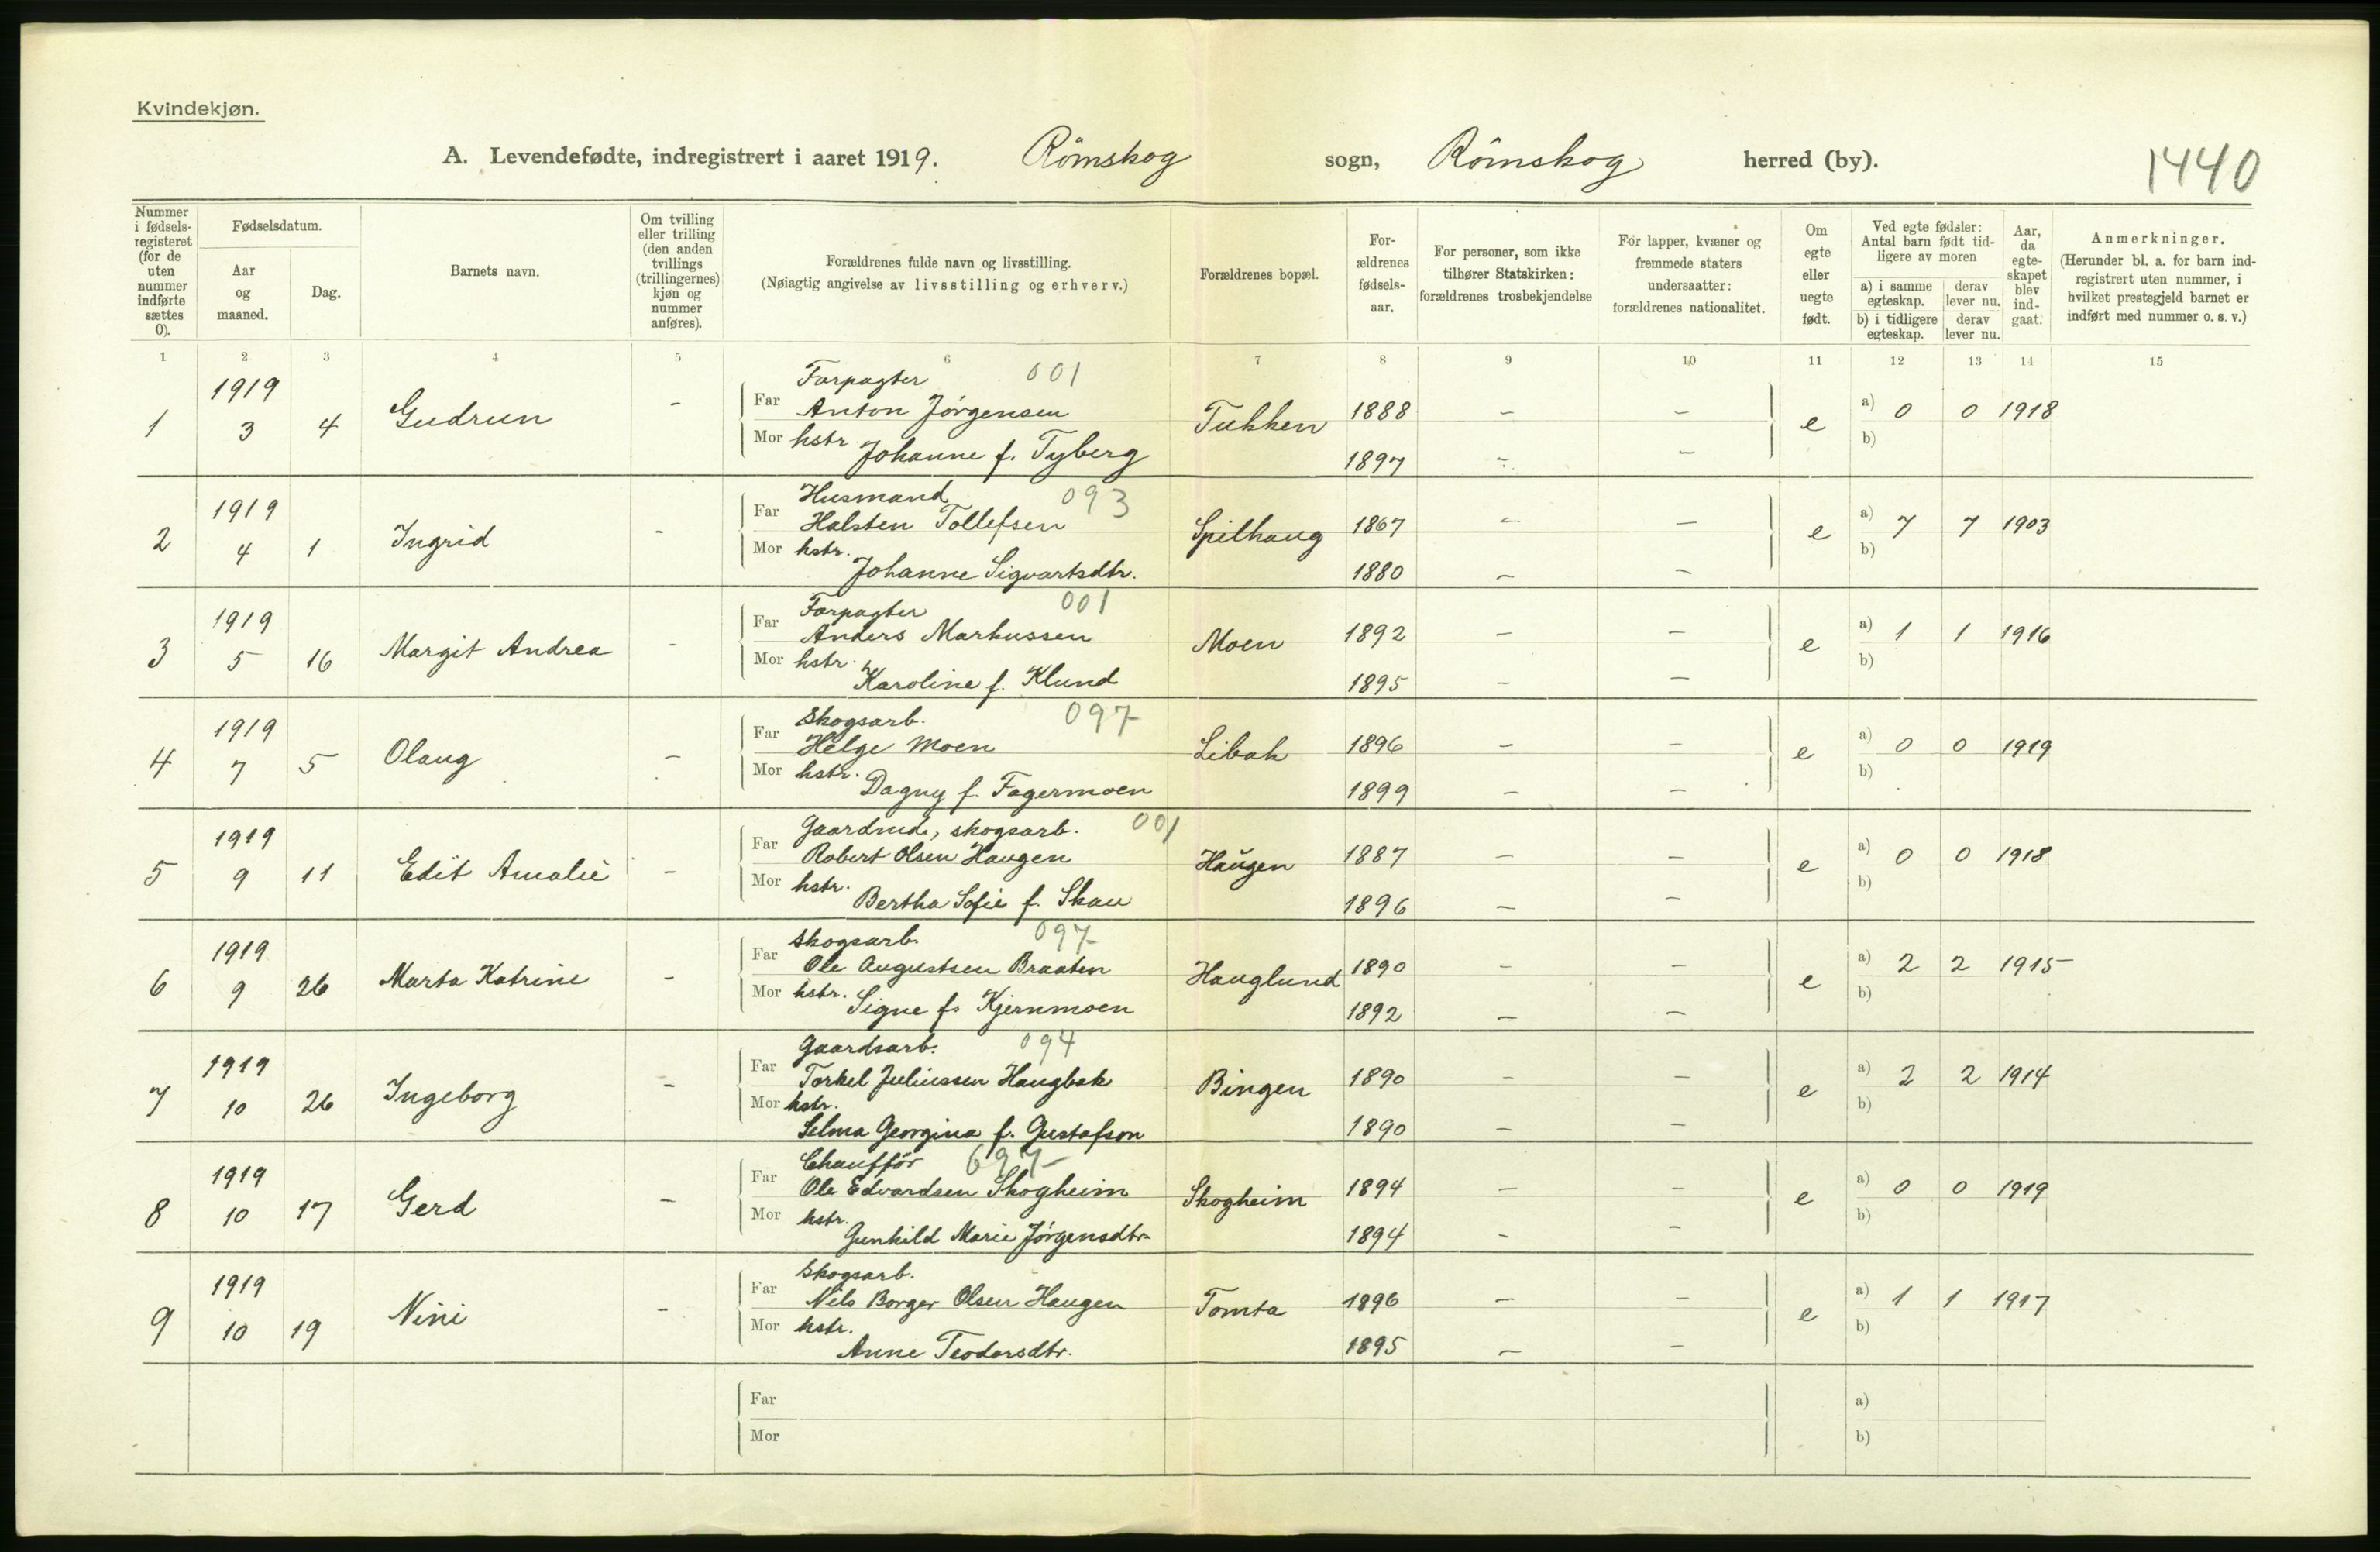 Kvindekjøn.
A. Levendefødte, indregistrert i aaret 1919. Römskog sogn, Römskog herred (by). 1440
Nummer i fødsels-registeret (for de uten nummer indførte sættes 0).
Fødselsdatum.
Aar og maaned.
Dag.
Barnets navn.
Om tvilling eller trilling (den anden tvillings (trillingernes) kjøn og nummer anføres).
Forældrenes fulde navn og livsstilling.
(Nøiagtig angivelse av livsstilling og erhverv.)
Forældrenes bopæl.
For-ældrenes fødsels-aar.
For personer, som ikke tilhører Statskirken: forældrenes trosbekjendelse
For lapper, kvæner og fremmede staters undersaatter: forældrenes nationalitet.
Om egte eller uegte født.
Ved egte fødsler: Antal barn født tid-ligere av moren
a) i samme egteskap. derav lever nu.
b) i tidligere egteskap. derav lever nu.
Aar, da egte-skapet blev ind-gaat.
Anmerkninger.
(Herunder bl. a. for barn ind-registrert uten nummer, i hvilket prestegjeld barnet er indført med nummer o. s. v.)
1 2 3 4 5 6 7 8 9 10 11 12 13 14 15
Forpagter 001
1 1919 3 4 Gudrun - Far Anton Jørgensen Tukken 1888 - - e a) 0 0 1918
Mor hstr Johanne f. Tyberg 1897 - - b)
Husmand 093
2 1919 4 1 Ingrid - Far Halsten Tollefsen Spilhaug 1867 - - e a) 7 7 1903
Mor hstr. Johanne Sigvartsdtr. 1880 - - b)
Forpagter 001
3 1919 5 16 Margit Andrea - Far Anders Markussen Moen 1892 - - e a) 1 1 1916
Mor hstr. Karoline f. Klund 1895 - - b)
Skogsarb. 097
4 1919 7 5 Olaug - Far Helge Moen Libak 1896 - - e a) 0 0 1919
Mor hstr. Dagny f. Fagermoen 1899 - - b)
Gaardmd., skogsarb. 001
5 1919 9 11 Edit Amalie - Far Robert Olsen Haugen Haugen 1887 - - e a) 0 0 1918
Mor hstr. Bertha Sofie f. Skau 1896 - - b)
Skogsarb. 097
6 1919 9 26 Marta Katrine - Far Ole Augustsen Braaten Hauglund 1890 - - e a) 2 2 1915
Mor hstr. Signe f. Kjernmoen 1892 - - b)
Gaardsarb. 094
7 1919 10 26 Ingeborg - Far Torkel Juliussen Haugbak Bingen 1890 - - e a) 2 2 1914
Mor hstr. Selma Georgina f. Gustafson 1890 - - b)
Chaufför 697
8 1919 10 17 Gerd - Far Ole Edvardsen Skogheim Skogheim 1894 - - e a) 0 0 1919
Mor hstr. Gunhild Marie Jørgensdtr 1894 - - b)
Skogsarb.
9 1919 10 19 Nini - Far Nils Borger Olsen Haugen Tomta 1896 - - e a) 1 1 1917
Mor hstr. Anne Teodorsdtr. 1895 - - b)
Far a)
Mor b)